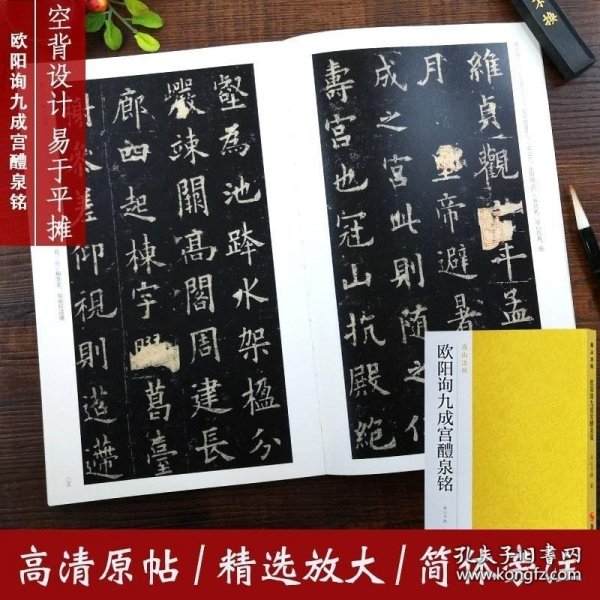 空背设计 易于平摊
欧阳询九成宫醴泉铭
維貞觀年孟
月帝避暑
成之宮此則随之
壽宮也冠山抗殿絶
壑為池跨水架楹分
巖竦闕髙閣周建長
廊四起棟宇膠葛臺
榭參差仰視則迢遰
南山法帖
欧阳询九成宫醴泉铭
欧阳询九成宫醴泉铭
高清原帖/精选放大/简体旁注
孔夫子旧书网
www.kongfz.com